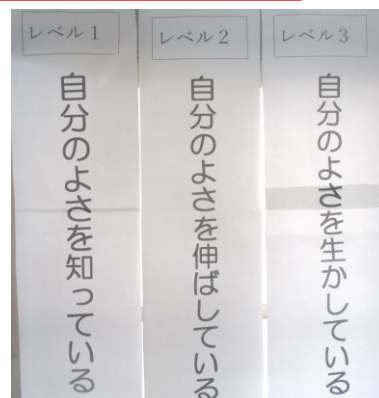 レベル1
自分のよさを知っている
レベル2
自分のよさを伸ばしている
レベル3
自分のよさを生かしている